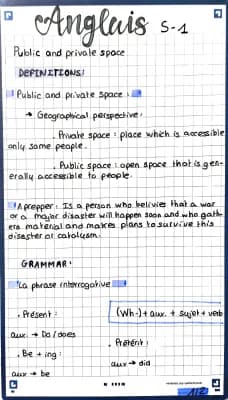 Anglais S-1
Public and private space
DEFINITIONS:
Public and private space :
→ Geographical perspective:
. Private space : place which is accessible
only some people.
. Public space : open space that is gen-
erally accessible to people.
A prepper: Is a person who belivies that a war
or a major disaster will happen soon and who gath-
ers material and makes plans to survive this
disaster or catalysm.
GRAMMAR:
La phrase interrogative
. Présent :
(Wh-) + aux. + sujet + verb
aux. → Do/does
. Be + ing :
. Prétérit :
aux → be
aux → did
1/2